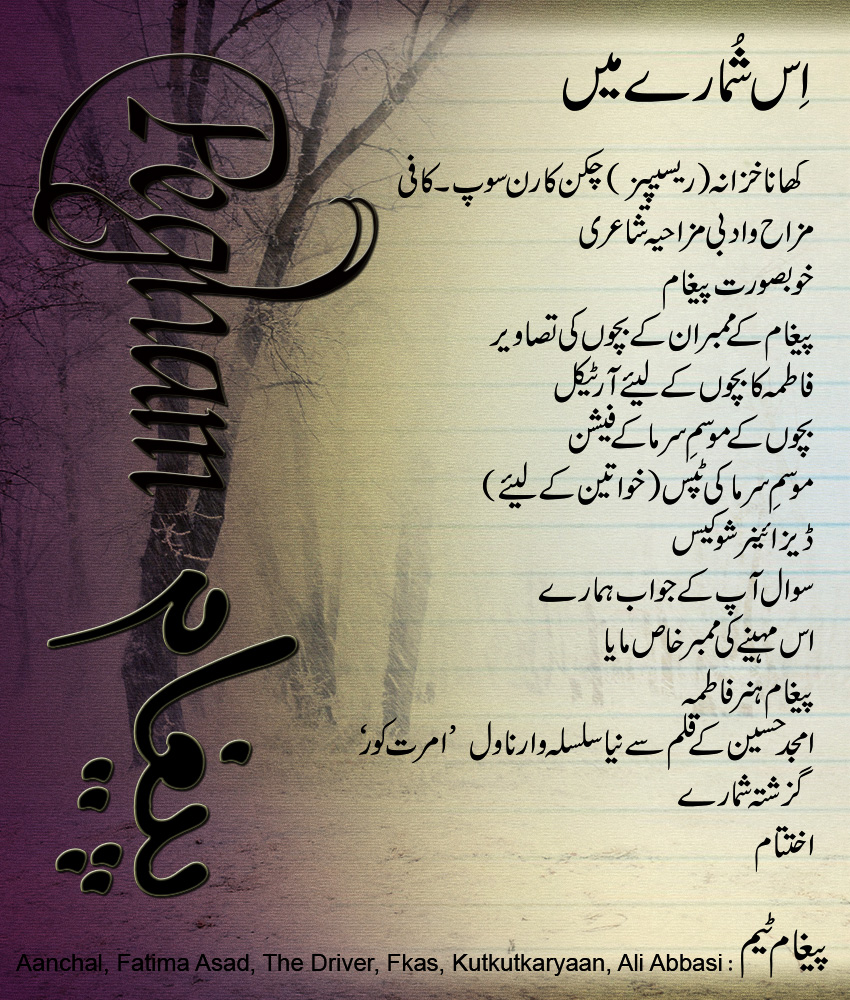 Pegham
پیغام
اِس شُمارے میں
کھانا خزانہ (ریسیپیز) چکن کارن سوپ۔ کافی
مزاح و ادبی مزاحیہ شاعری
خوبصورت پیغام
پیغام کے ممبران کے بچوں کی تصاویر
فاطمہ کا بچوں کے لیئے آرٹیکل
بچوں کے موسمِ سرما کے فیشن
موسمِ سرما کی ٹپس (خواتین کے لیئے)
ڈیزائینر شوکیس
سوال آپ کے جواب ہمارے
اس مہینے کی ممبر خاص مایا
پیغام ہنر فاطمہ
امجد حسین کے قلم سے نیا سلسلہ وار ناول ’امرت کور‘
گزشتہ شمارے
اختتام
پیغام ٹیم : Aanchal, Fatima Asad, The Driver, Fkas, Kutkutkaryaan, Ali Abbasi